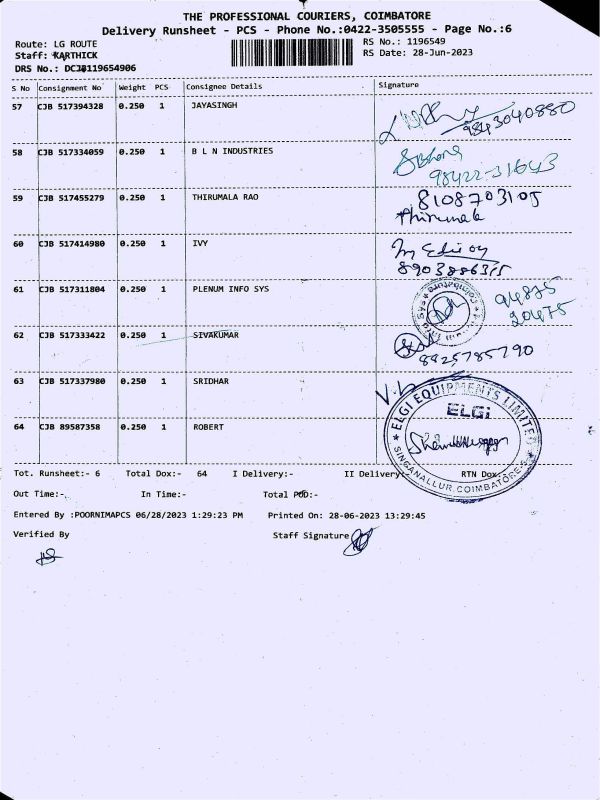 THE PROFESSIONAL COURIERS, COIMBATORE
Delivery Runsheet - PCS - Phone No.:0422-3505555 - Page No.:6
Route: LG ROUTE
RS No.: 1196549
Staff: KARTHICK
RS Date: 28-Jun-2023
DRS No.: 119654906
S No Consignment No Weight PCS Consignee Details Signature
57 CJB 517394328 0.250 1 JAYASINGH
9843040880
58 CJB 517334059 0.250 1 B L N INDUSTRIES
98422-31643
59 CJB 517455279 0.250 1 THIRUMALA RAO 8108703105
60 CJB 517414980 0.250 1 IVY
61 CJB 517311804 0.250 1 PLENUM INFO SYS 94875
20475
62 CJB 517333422 0.250 1 SIVAKUMAR
8925785790
63 CJB 517337980 0.250 1 SRIDHAR
ELGI EQUIPMENTS LIMITED
ELGI
64 CJB 89587358 0.250 1 ROBERT
SINGANALLUR COIMBATORE-5
Tot. Runsheet:- 6 Total Dox:- 64 I Delivery:- II Delivery:- RTN Dox:
Out Time:- In Time:- Total POD:-
Entered By :POORNIMAPCS 06/28/2023 1:29:23 PM Printed On: 28-06-2023 13:29:45
Verified By Staff Signature